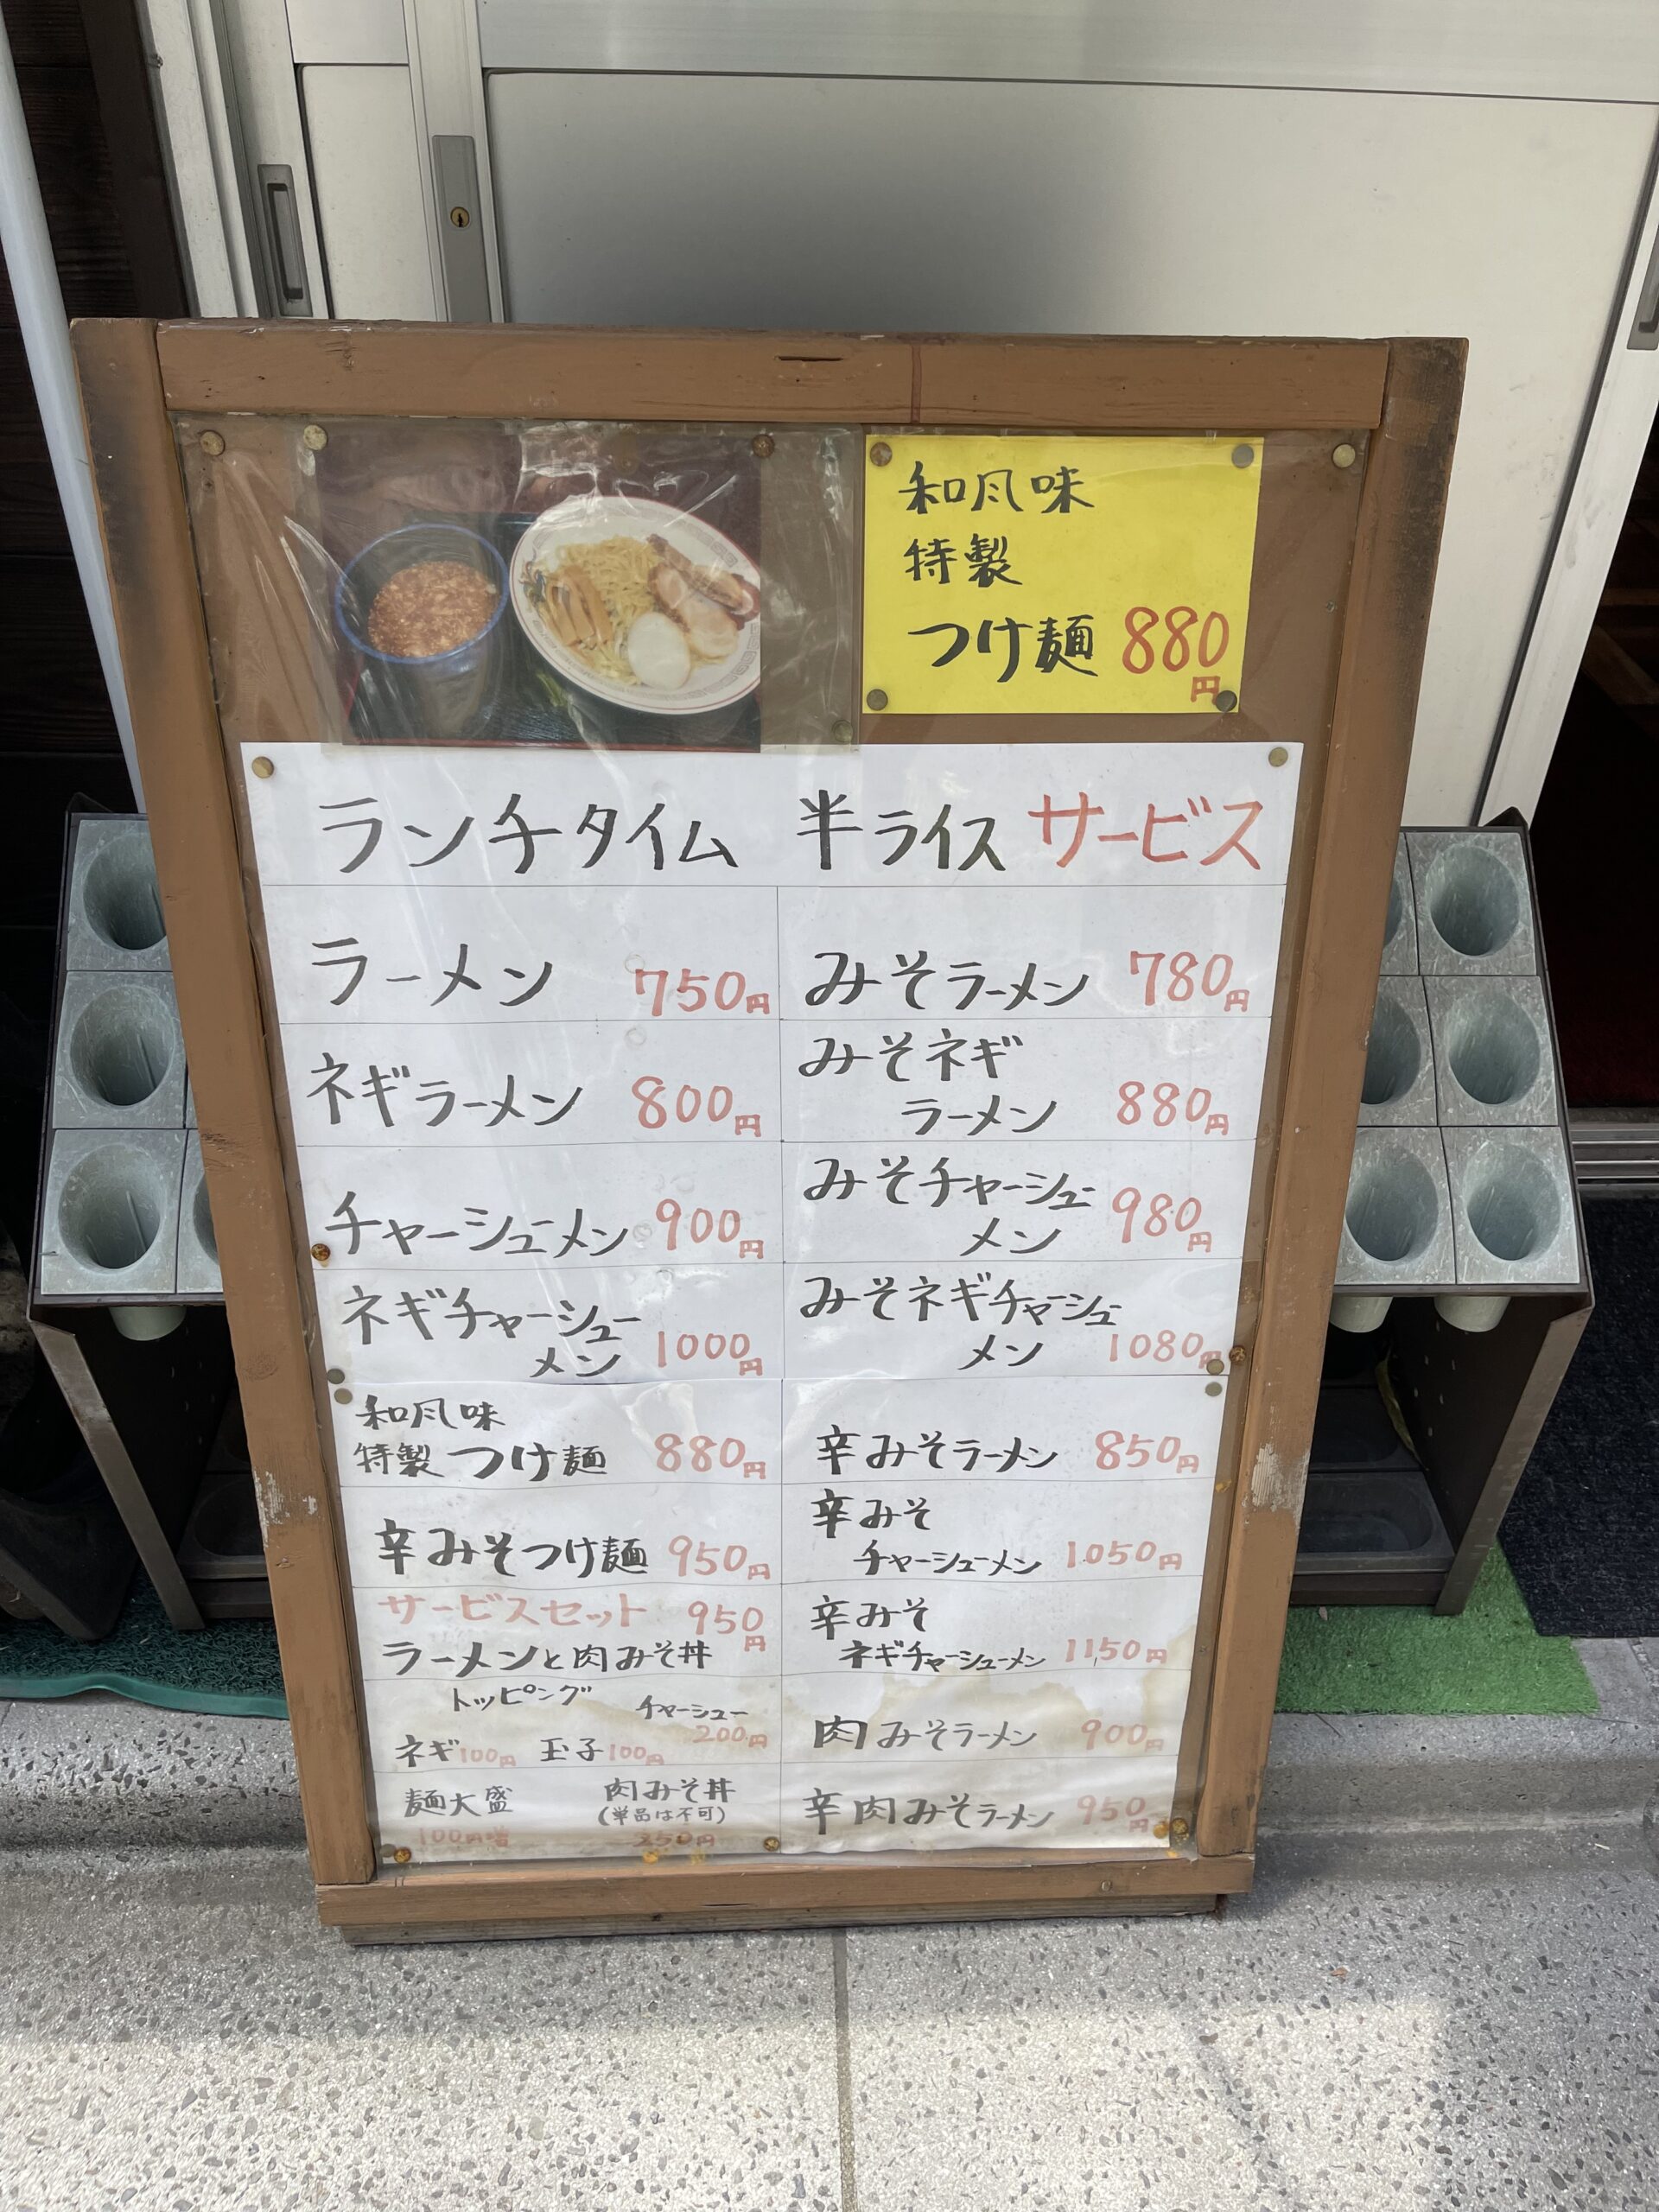 和風味
特製
つけ麺 880円
ランチタイム 半ライス サービス
ラーメン 750円
みそラーメン 780円
ネギラーメン 800円
みそネギ
ラーメン 880円
チャーシューメン 900円
みそチャーシュー
メン 980円
ネギチャーシュー
メン 1000円
みそネギチャーシュー
メン 1080円
和風味
特製つけ麺 880円
辛みそラーメン 850円
辛みそつけ麺 950円
辛みそ
チャーシューメン 1050円
サービスセット 950円
ラーメンと肉みそ丼
辛みそ
ネギチャーシューメン 1150円
トッピング
チャーシュー
200円
ネギ100円 玉子100円
肉みそラーメン 900円
麺大盛
100円増
肉みそ丼
(単品は不可)
250円
辛肉みそラーメン 950円